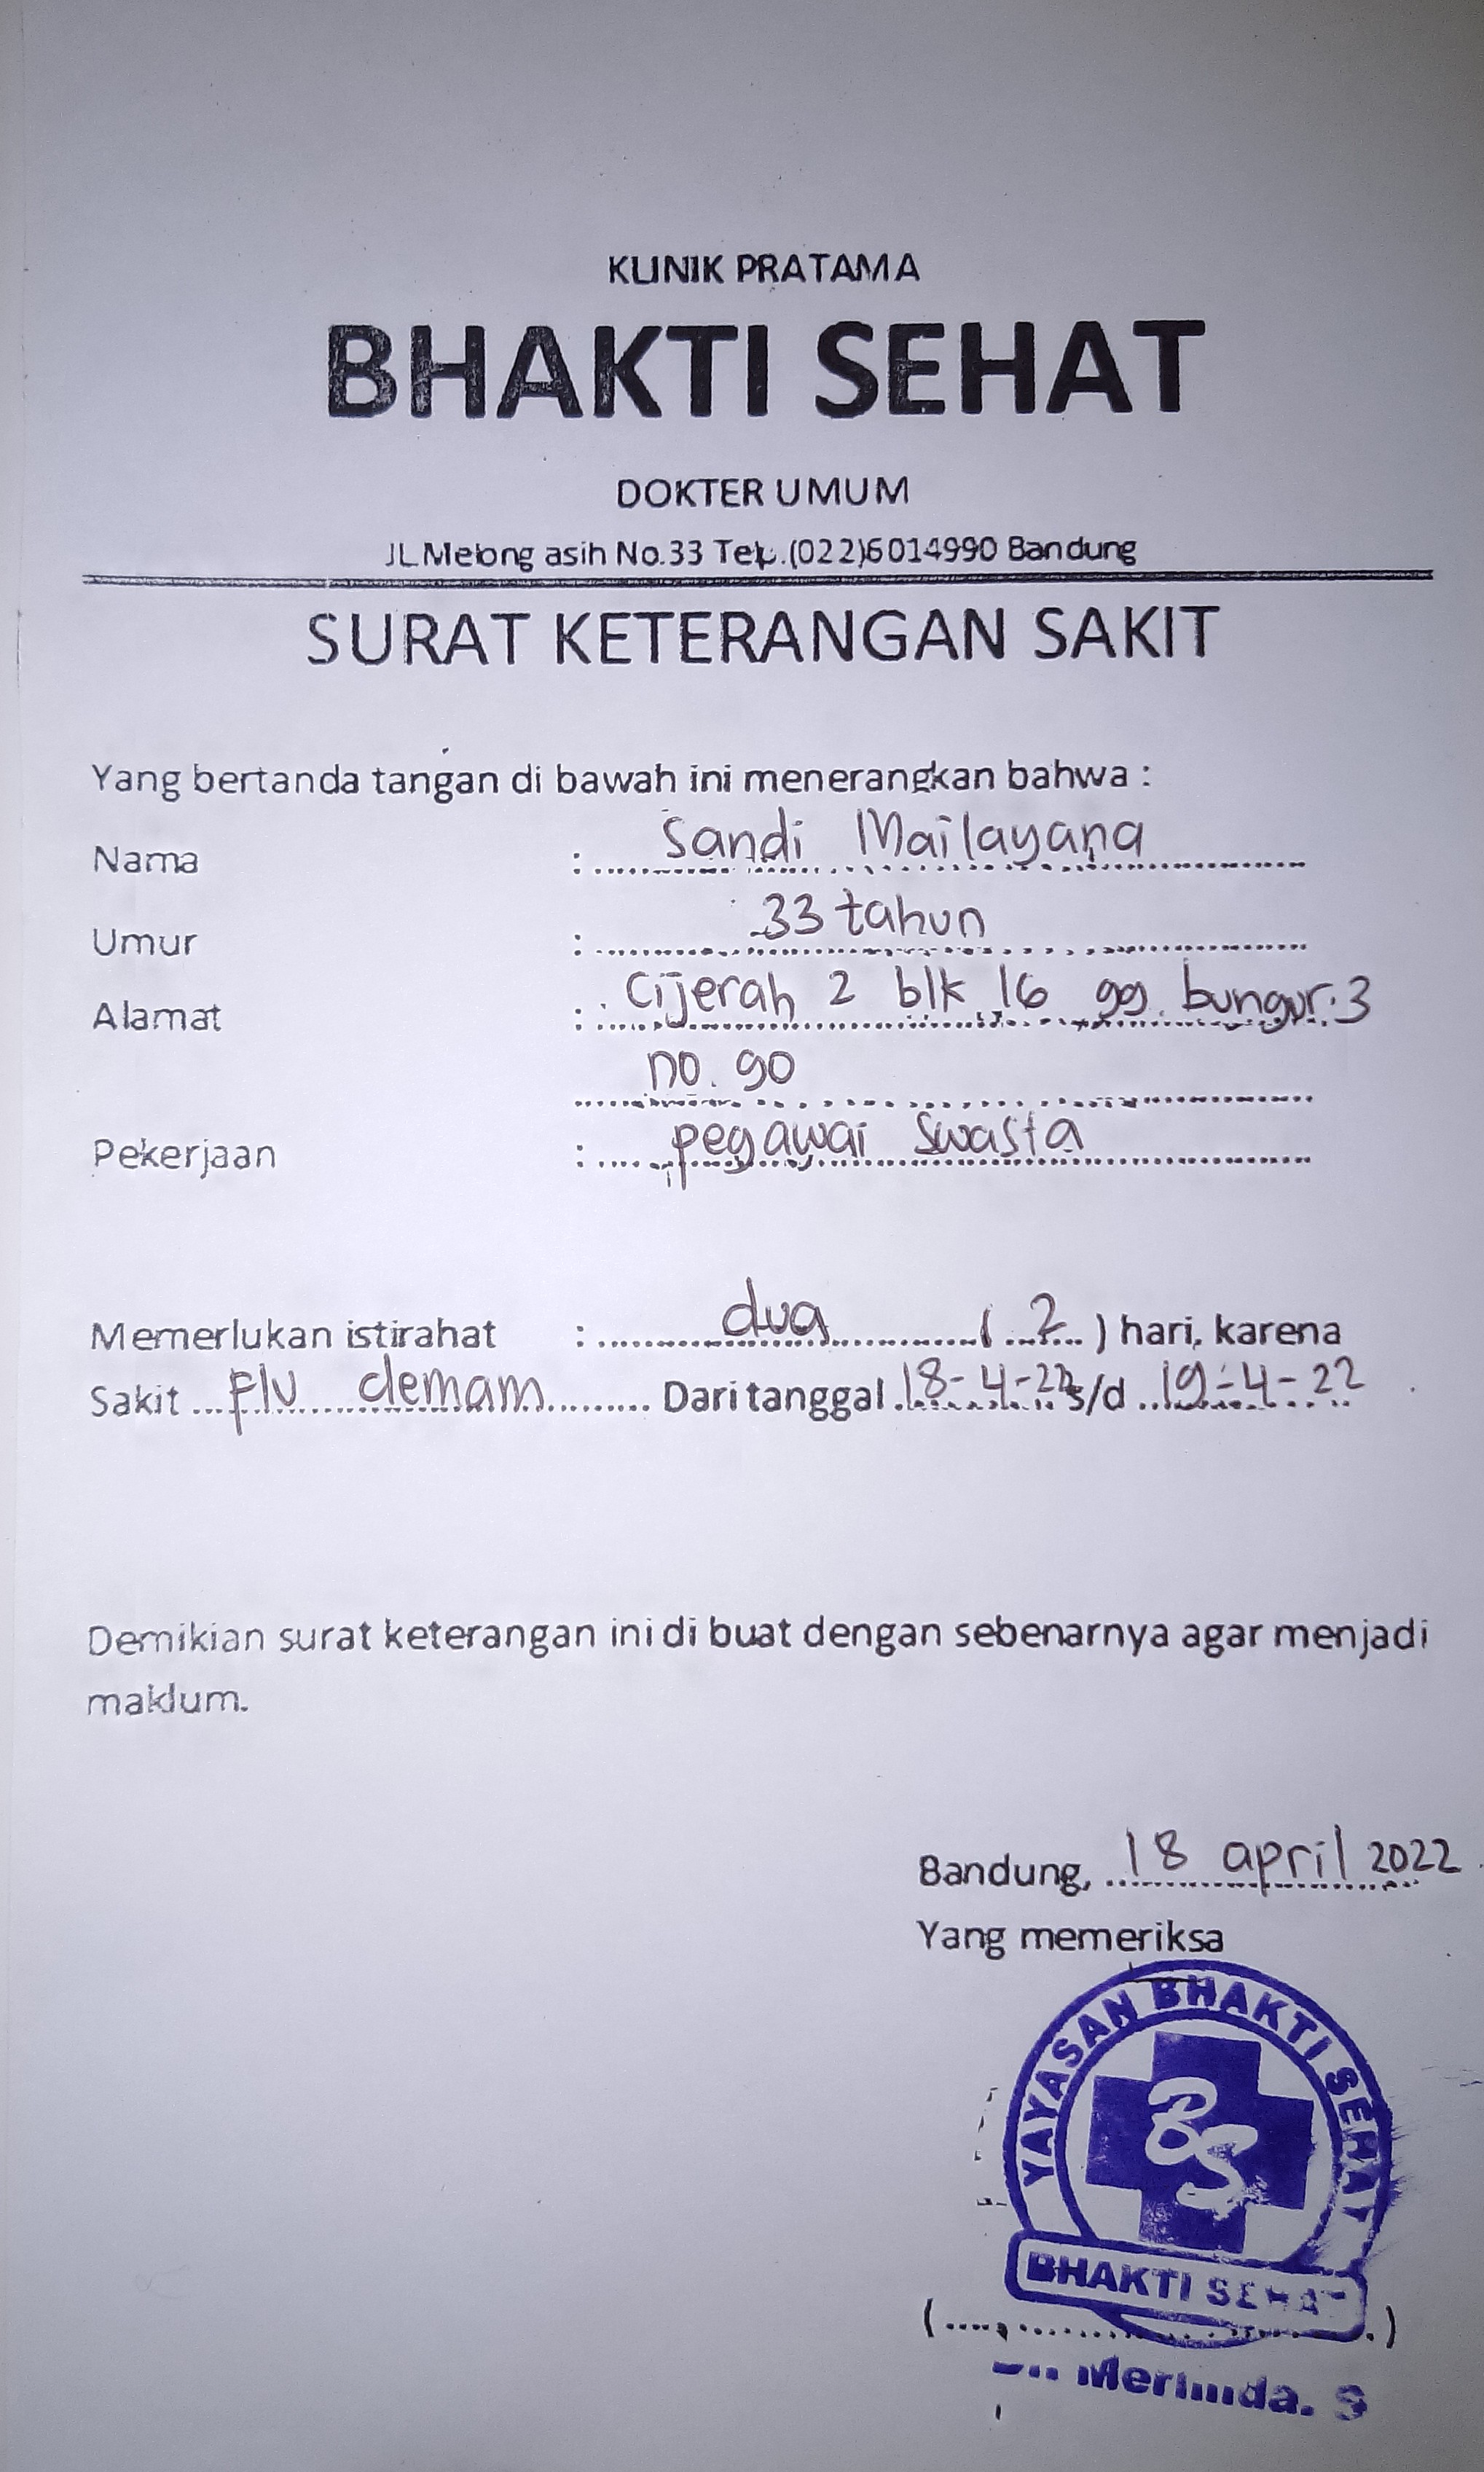 KLINIK PRATAMA
BHAKTI SEHAT
DOKTER UMUM
JL.Melong asih No.33 Telp.(022)6014990 Bandung
SURAT KETERANGAN SAKIT
Yang bertanda tangan di bawah ini menerangkan bahwa :
Nama : Sandi Mailayana
Umur : 33 tahun
Alamat : Cijerah 2 blk 16 gg. bungur 3
no. 90
Pekerjaan : pegawai Swasta
Memerlukan istirahat : dua ( 2 ) hari, karena
Sakit Flu demam Dari tanggal 18-4-22 s/d 19-4-22
Demikian surat keterangan ini di buat dengan sebenarnya agar menjadi
maklum.
Bandung, 18 april 2022
Yang memeriksa
YAYASAN BHAKTI SEHAT
BS
BHAKTI SEHAT
(....................)